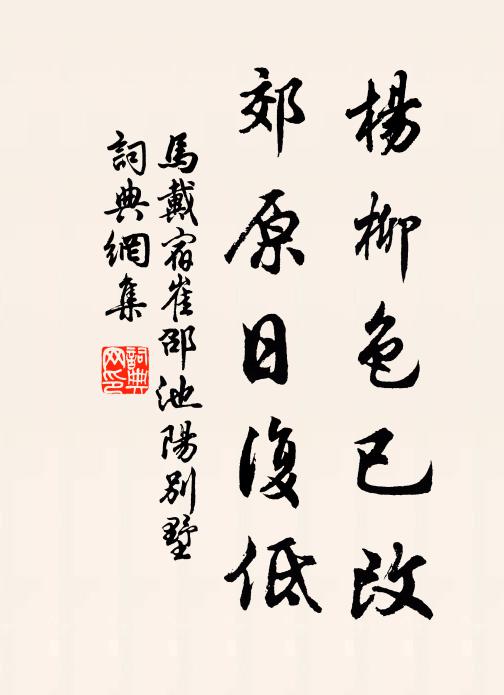 楊柳色已改
郊原日復低
馬戴宿崔邵池陽別墅
詞典網集
詞典网印